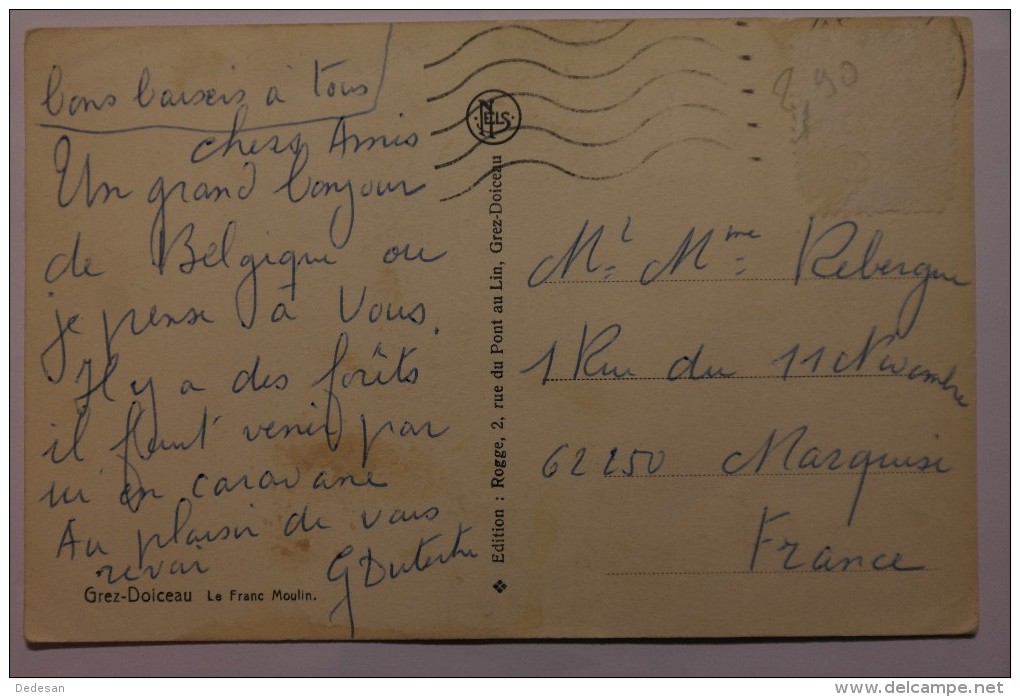 bons baisers à tous
chers Amis
Un grand bonjour
de Belgique ou
je pense a Vous.
Il y a des forêts
il faut venir par
ici en caravane
Au plaisir de vous
revoir
G Dutertre
Grez-Doiceau Le Franc Moulin.
NELS
Edition : Rogge, 2, rue du Pont au Lin, Grez-Doiceau
2,90
Mr Mme Rebergue
1 Rue du 11 Novembre
62250 Marquise
France
Dedesan
www.delcampe.net